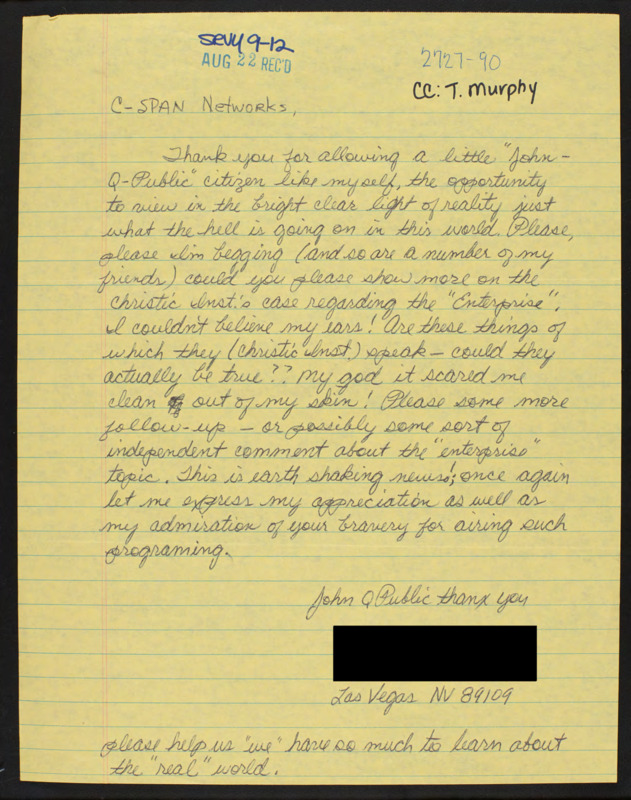 Sevy 9-12
AUG 22 REC'D
2727-90
CC: T. Murphy
C-SPAN Networks,
Thank you for allowing a little "John-
Q-Public" citizen like myself, the opportunity
to view in the bright clear light of reality just
what the hell is going on in this world. Please,
please I'm begging (and so are a number of my
friends) could you please show more on the
christic Inst.'s case regarding the "Enterprise".
I couldn't believe my ears! Are these things of
which they (christic Inst.) speak - could they
actually be true?? my god it scared me
clean out of my skin! Please some more
follow-up - or possibly some sort of
independent comment about the "enterprise"
topic. This is earth shaking news!; once again
let me express my appreciation as well as
my admiration of your bravery for airing such
programing.
John Q Public thanx you
Las Vegas NV 89109
please help us "we" have so much to learn about
the "real" world.